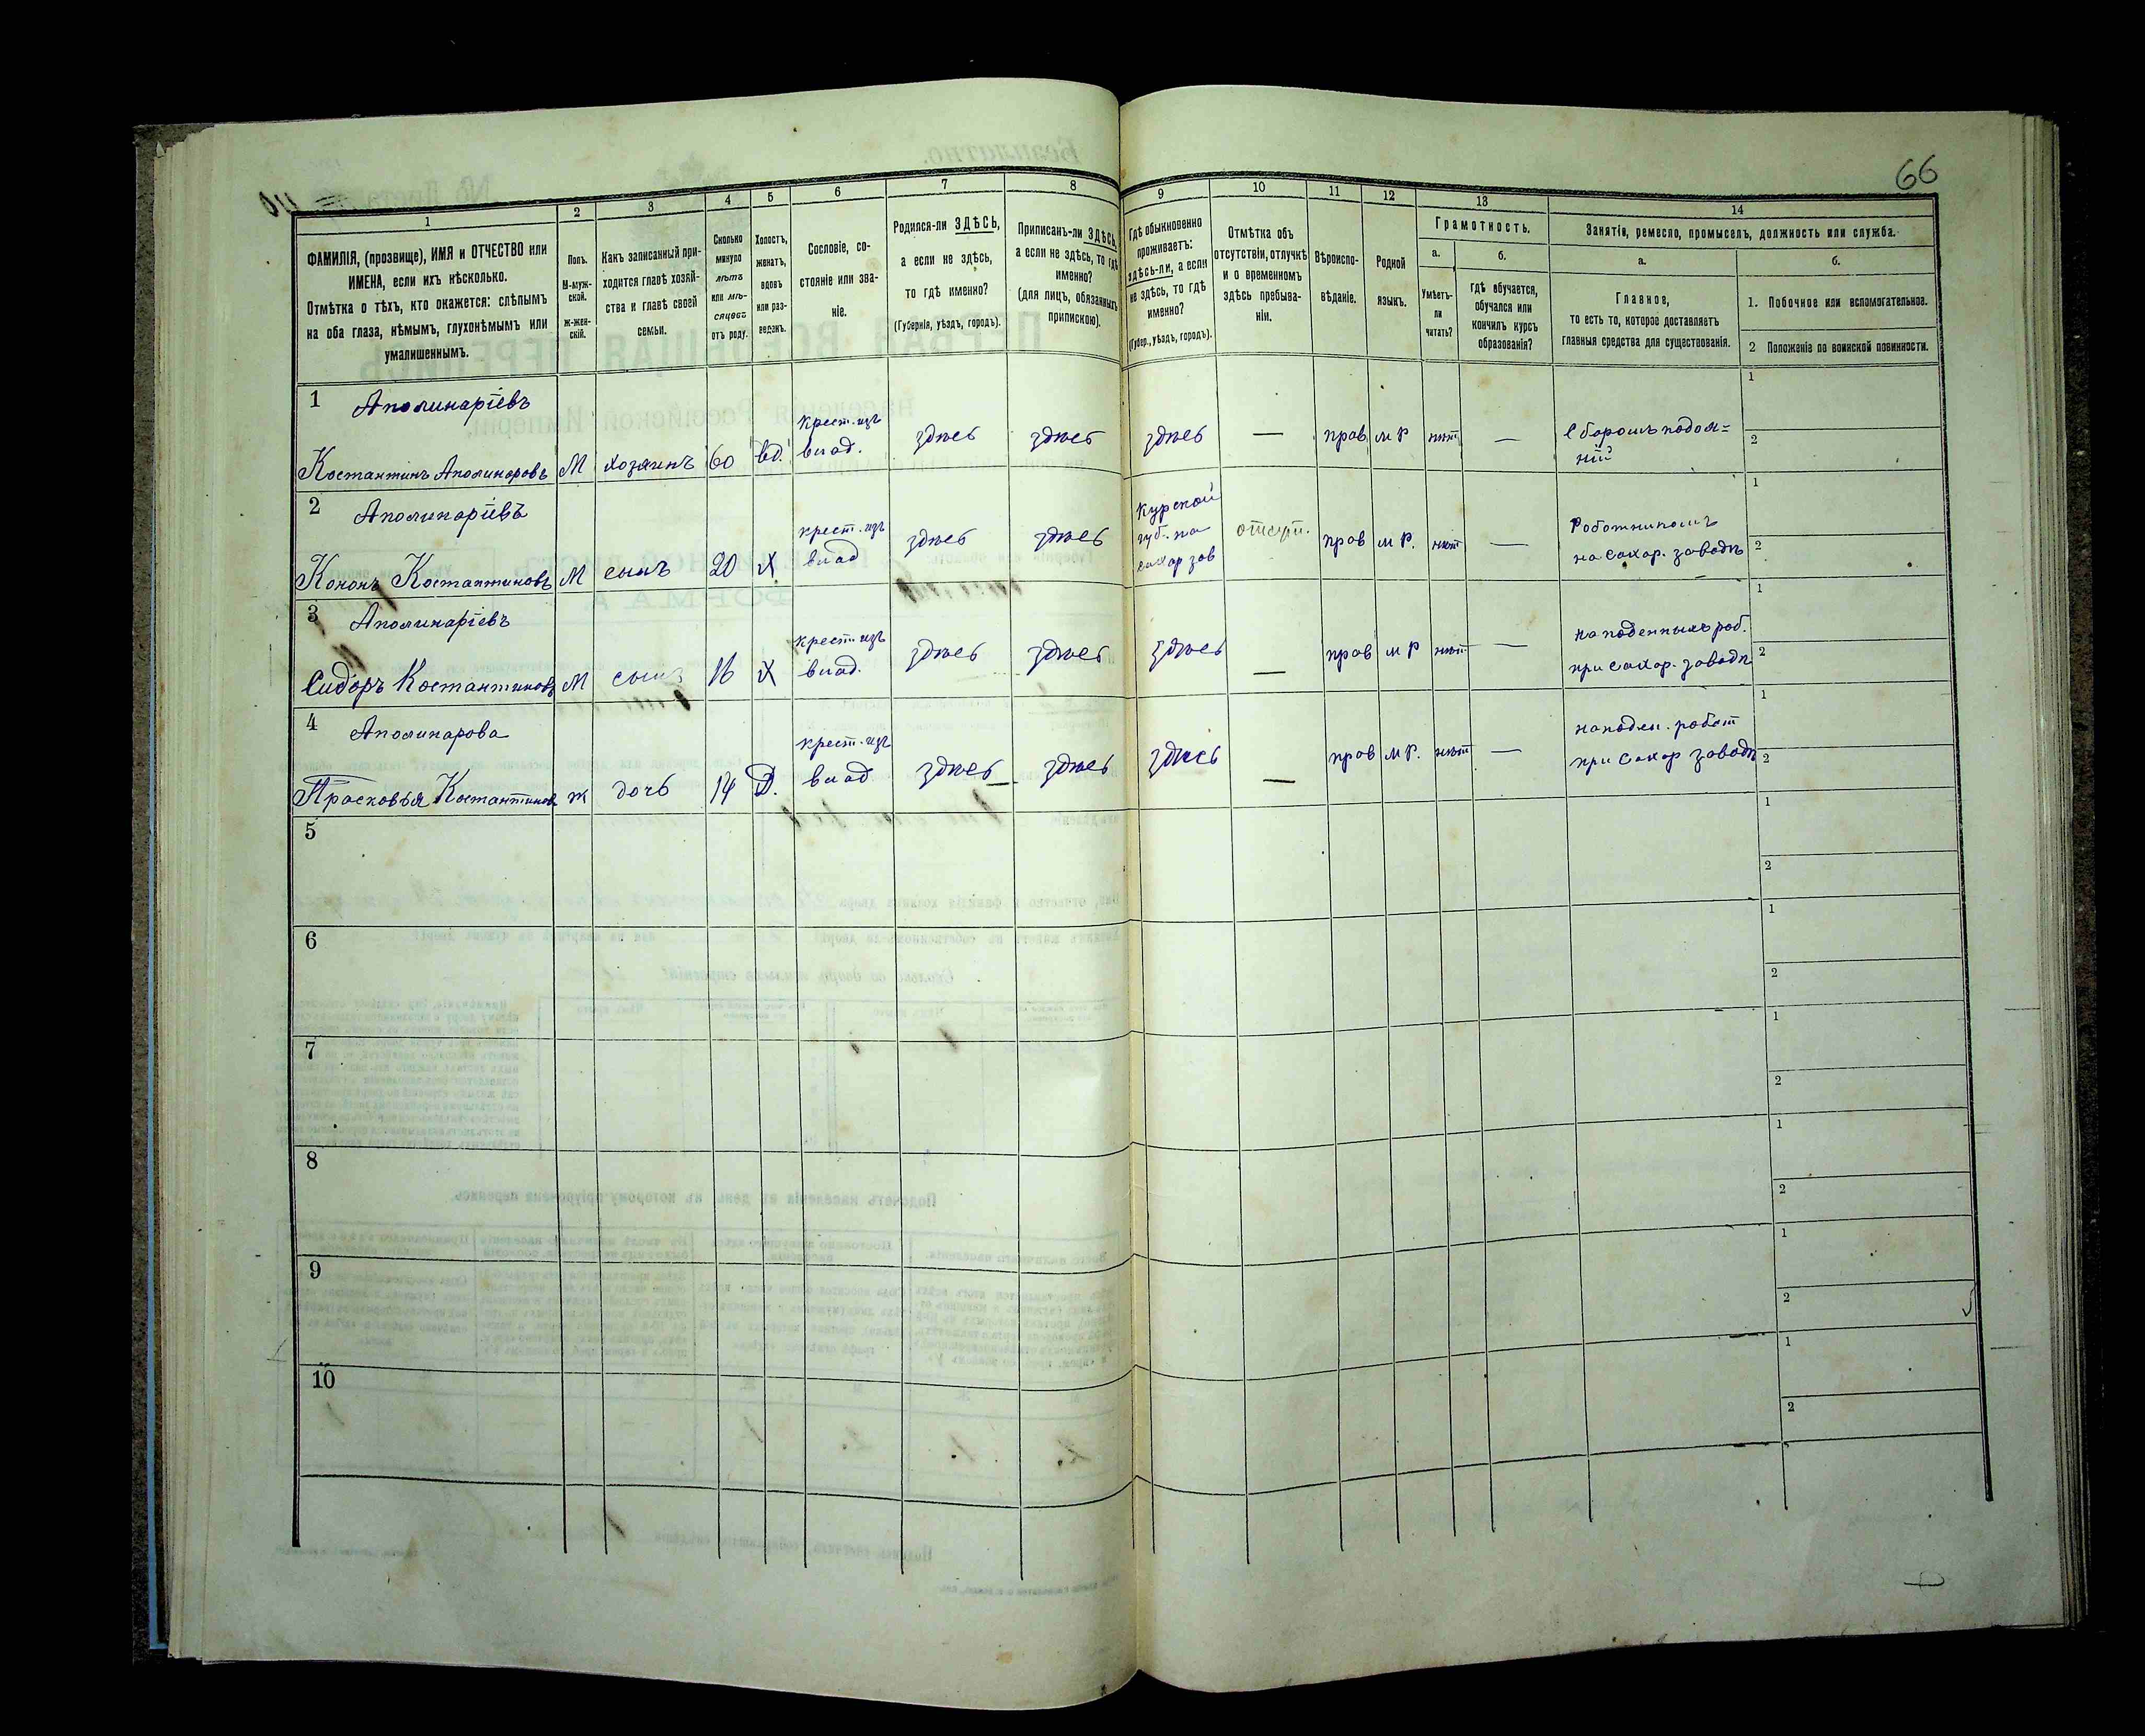 66
1 2 3 4 5 6 7 8 9 10 11 12 13 14
ФАМИЛІЯ, (прозвище), ИМЯ и ОТЧЕСТВО или
ИМЕНА, если ихъ нѣсколько.
Отмѣтка о тѣхъ, кто окажется: слѣпымъ
на оба глаза, нѣмымъ, глухонѣмымъ или
умалишеннымъ.
Полъ.
М-муж-
ской.
ж-жен-
скій.
Какъ записанный при-
ходится главѣ хозяй-
ства и главѣ своей
семьи.
Сколько
минуло
лѣтъ
или мѣ-
сяцевъ
отъ роду.
Холостъ,
женатъ,
вдовъ
или раз-
веденъ.
Сословіе, со-
стояніе или зва-
ніе.
Родился-ли ЗДѢСЬ,
а если не здѣсь,
то гдѣ именно?
(Губернія, уѣздъ, городъ).
Приписанъ-ли ЗДѢСЬ,
а если не здѣсь, то гдѣ
именно?
(для лицъ, обязанныхъ
припискою).
Гдѣ обыкновенно
проживаетъ:
здѣсь-ли, а если
не здѣсь, то гдѣ
именно?
(Губер., уѣздъ, городъ).
Отмѣтка объ
отсутствіи, отлучкѣ
и о временномъ
здѣсь пребыва-
ніи.
Вѣроиспо-
вѣданіе.
Родной
языкъ.
Грамотность.
а.
Умѣетъ-
ли
читать?
б.
гдѣ обучается,
обучался или
кончилъ курсъ
образованія?
Занятіе, ремесло, промыселъ, должность или служба.
а.
Главное,
то есть то, которое доставляетъ
главныя средства для существованія.
б.
1. Побочное или вспомогательное.
2 Положеніе по воинской повинности.
1 Аполинаріевъ
Костантинъ Аполинаровъ М хозяинъ 60 вд. крест. изъ
влад. здѣсь здѣсь здѣсь — прав м р нѣт —
1
2
2 Аполинаріевъ
Кононъ Костантиновъ М сынъ 20 Х крест. изъ
влад здѣсь здѣсь Курской
губ. на
сахар зав отсут. прав м р. нѣт — Работникомъ
на сахар. заводѣ
1
2
3 Аполинаріевъ
Сидоръ Костантиновъ М сынъ 16 Х крест. изъ
влад. здѣсь здѣсь здѣсь — прав м р нѣт — на поденныхъ раб.
при сахар. заводѣ
1
2
4 Аполинарова
Прасковья Костантинов ж дочь 14 Д. крест. изъ
влад здѣсь здѣсь здѣсь — прав м р. нѣт — на поден. работ
при сахар заводѣ
1
2
5
1
2
6
1
2
7
1
2
8
1
2
9
1
2
10
1
2